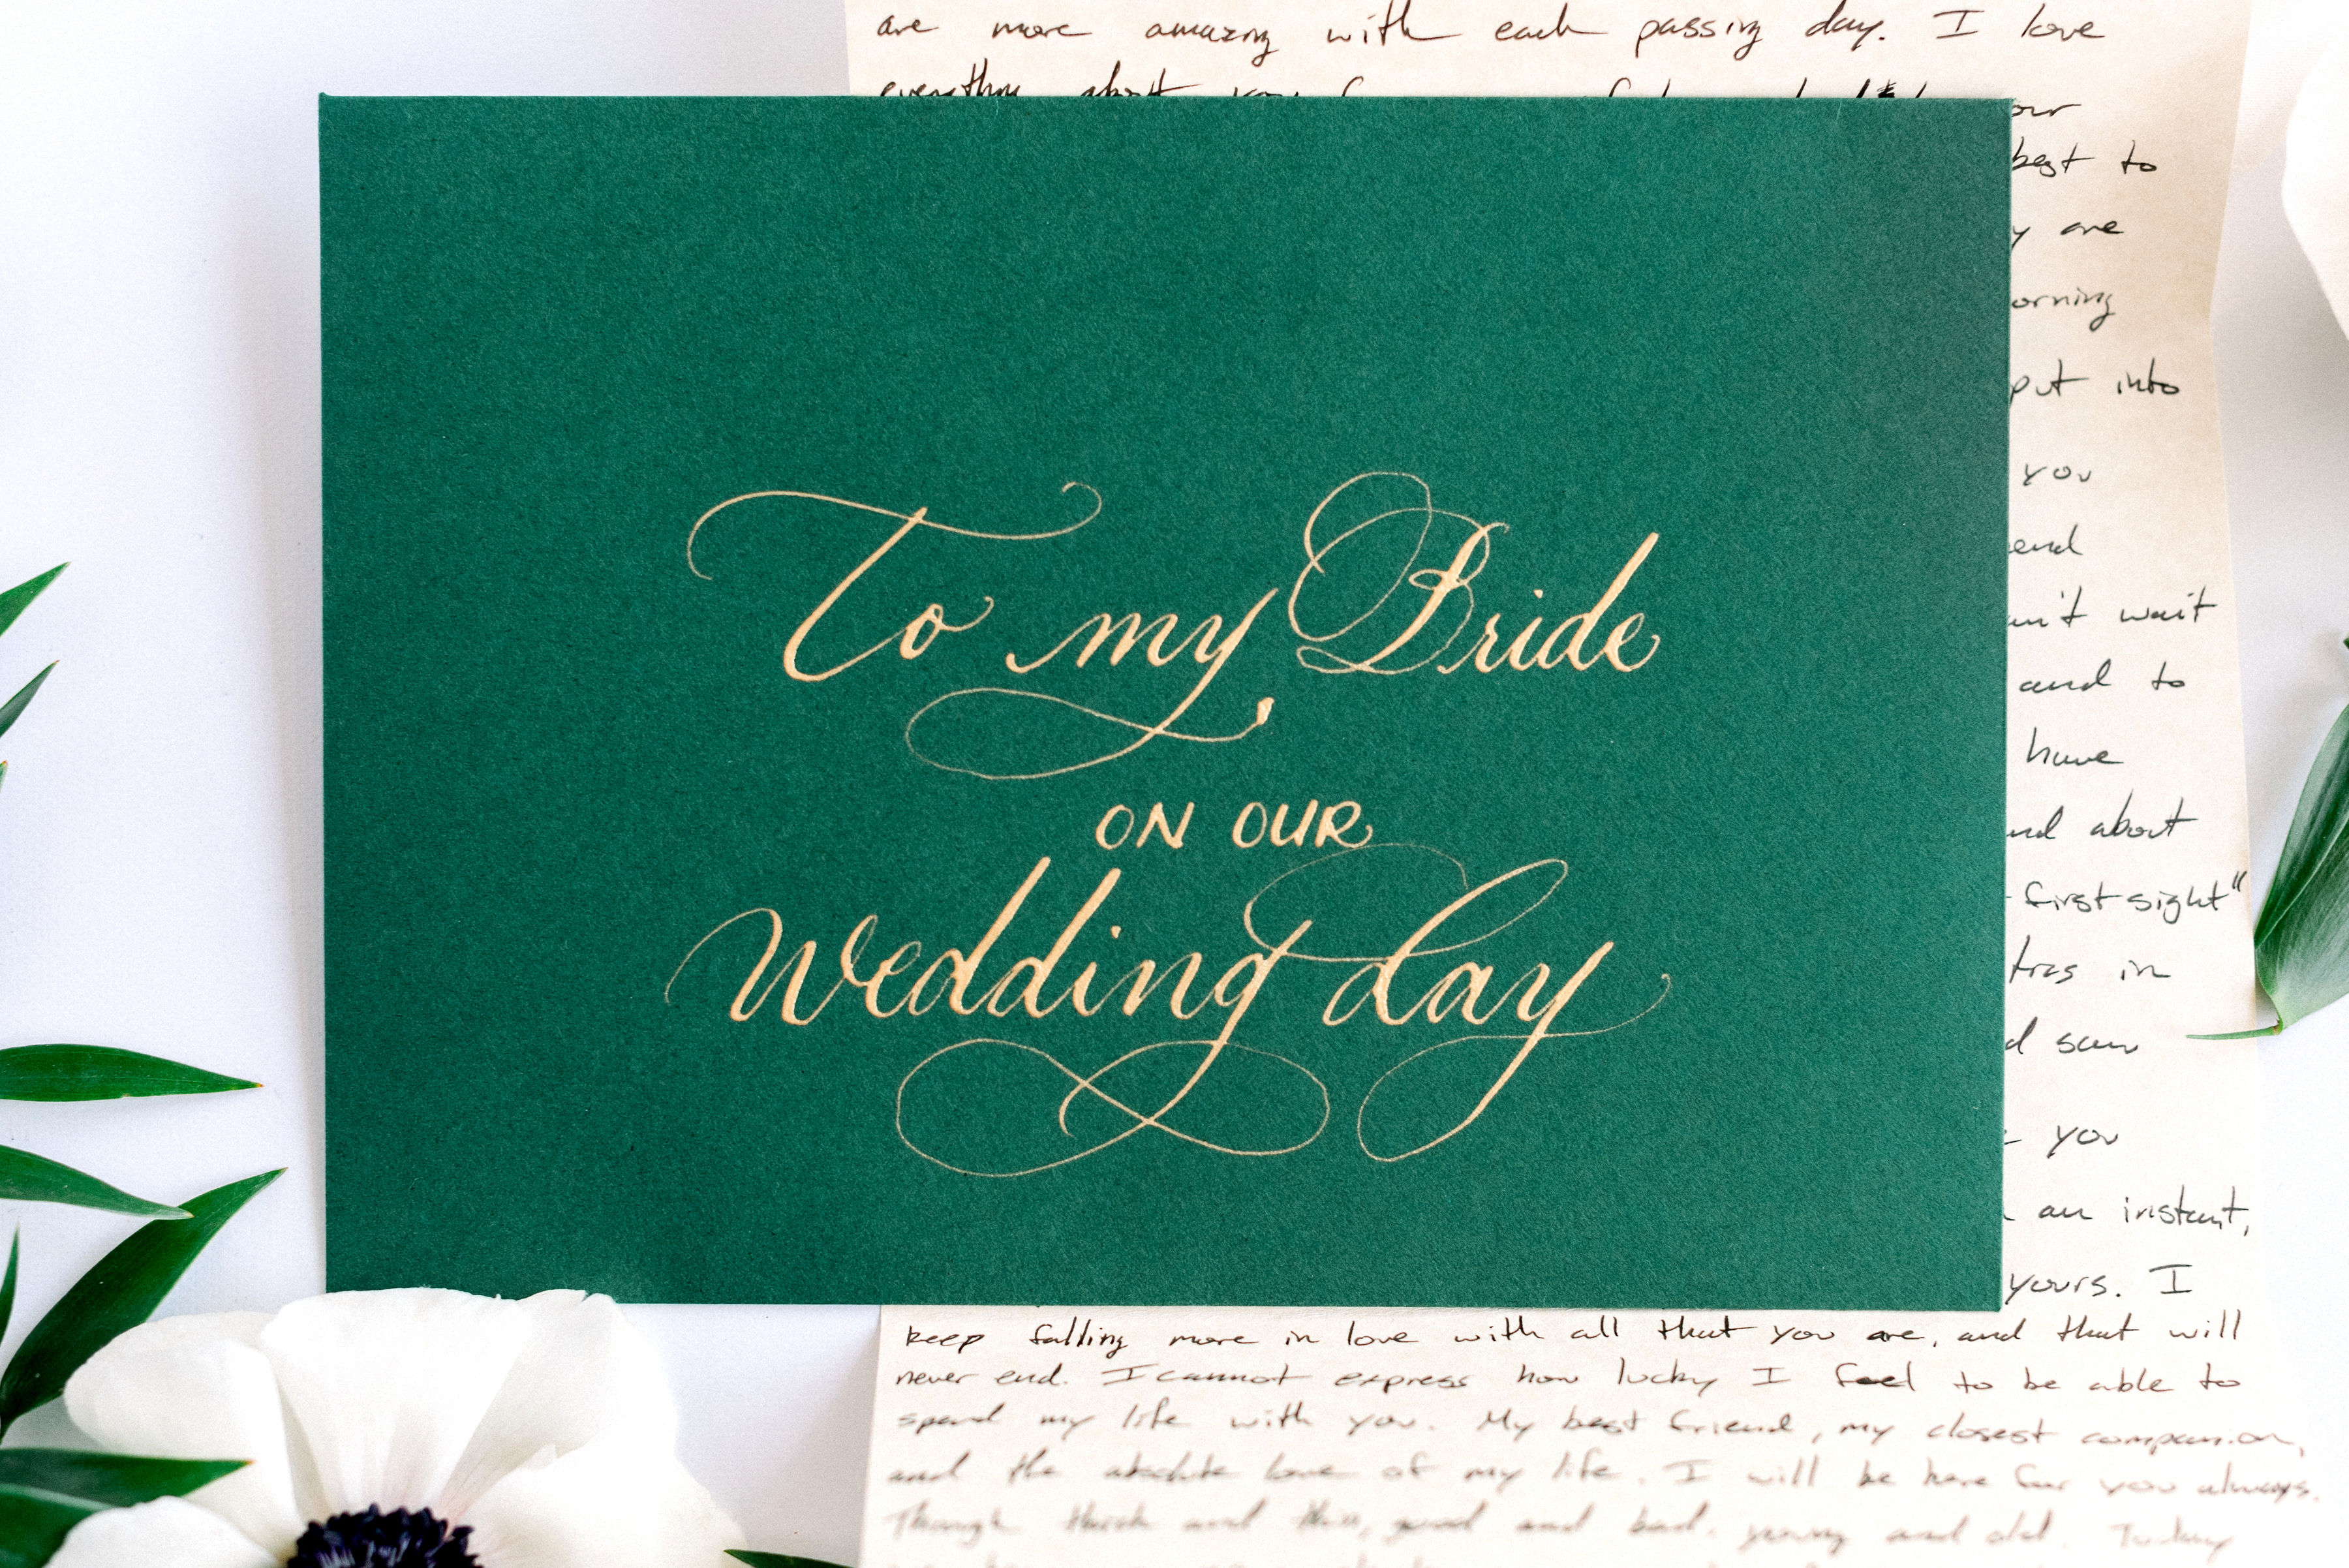 are more amazing with each passing day. I love
everything about you
our
best to
are
put into
you
wait
and to
have
about
first sight"
in
saw
you
an instant,
yours. I
To my Bride
ON OUR
Wedding day
keep falling more in love with all that you are, and that will
never end. I cannot express how lucky I feel to be able to
spend my life with you. My best friend, my closest companion,
and the absolute love of my life. I will be here for you always.
Through thick and thin, good and bad, young and old. Today